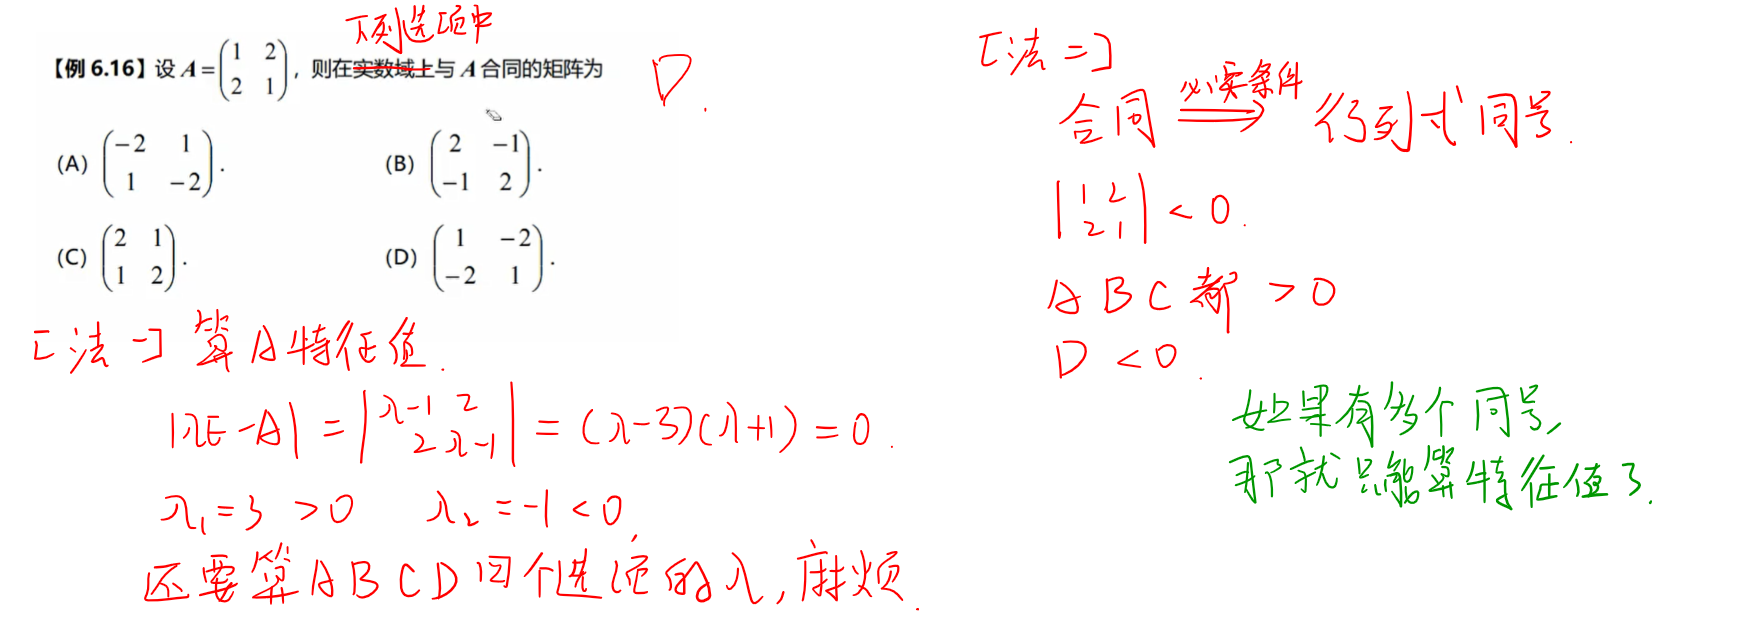 下列选项中
【例 6.16】设 A = (1 2 2 1), 则在实数域上与 A 合同的矩阵为
D.
(A) (-2 1 1 -2).
(B) (2 -1 -1 2).
(C) (2 1 1 2).
(D) (1 -2 -2 1).
[法一] 算A特征值.
|λE-A| = |λ-1 2 2 λ-1| = (λ-3)(λ+1) = 0.
λ₁=3 >0 λ₂=-1<0,
还要算ABCD四个选项的λ, 麻烦.
[法二]
必要条件
合同 ⟹ 行列式同号.
|1 2 2 1| < 0.
A B C 都 > 0
D < 0.
如果有多个同号,
那就只能算特征值了.